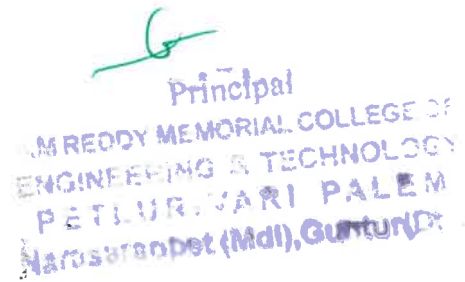 Principal
.M REDDY MEMORIAL COLLEGE OF
ENGINEERING & TECHNOLOGY
PETLURIVARI PALEM
Narasaraopet (Mdl), Guntur(Dt